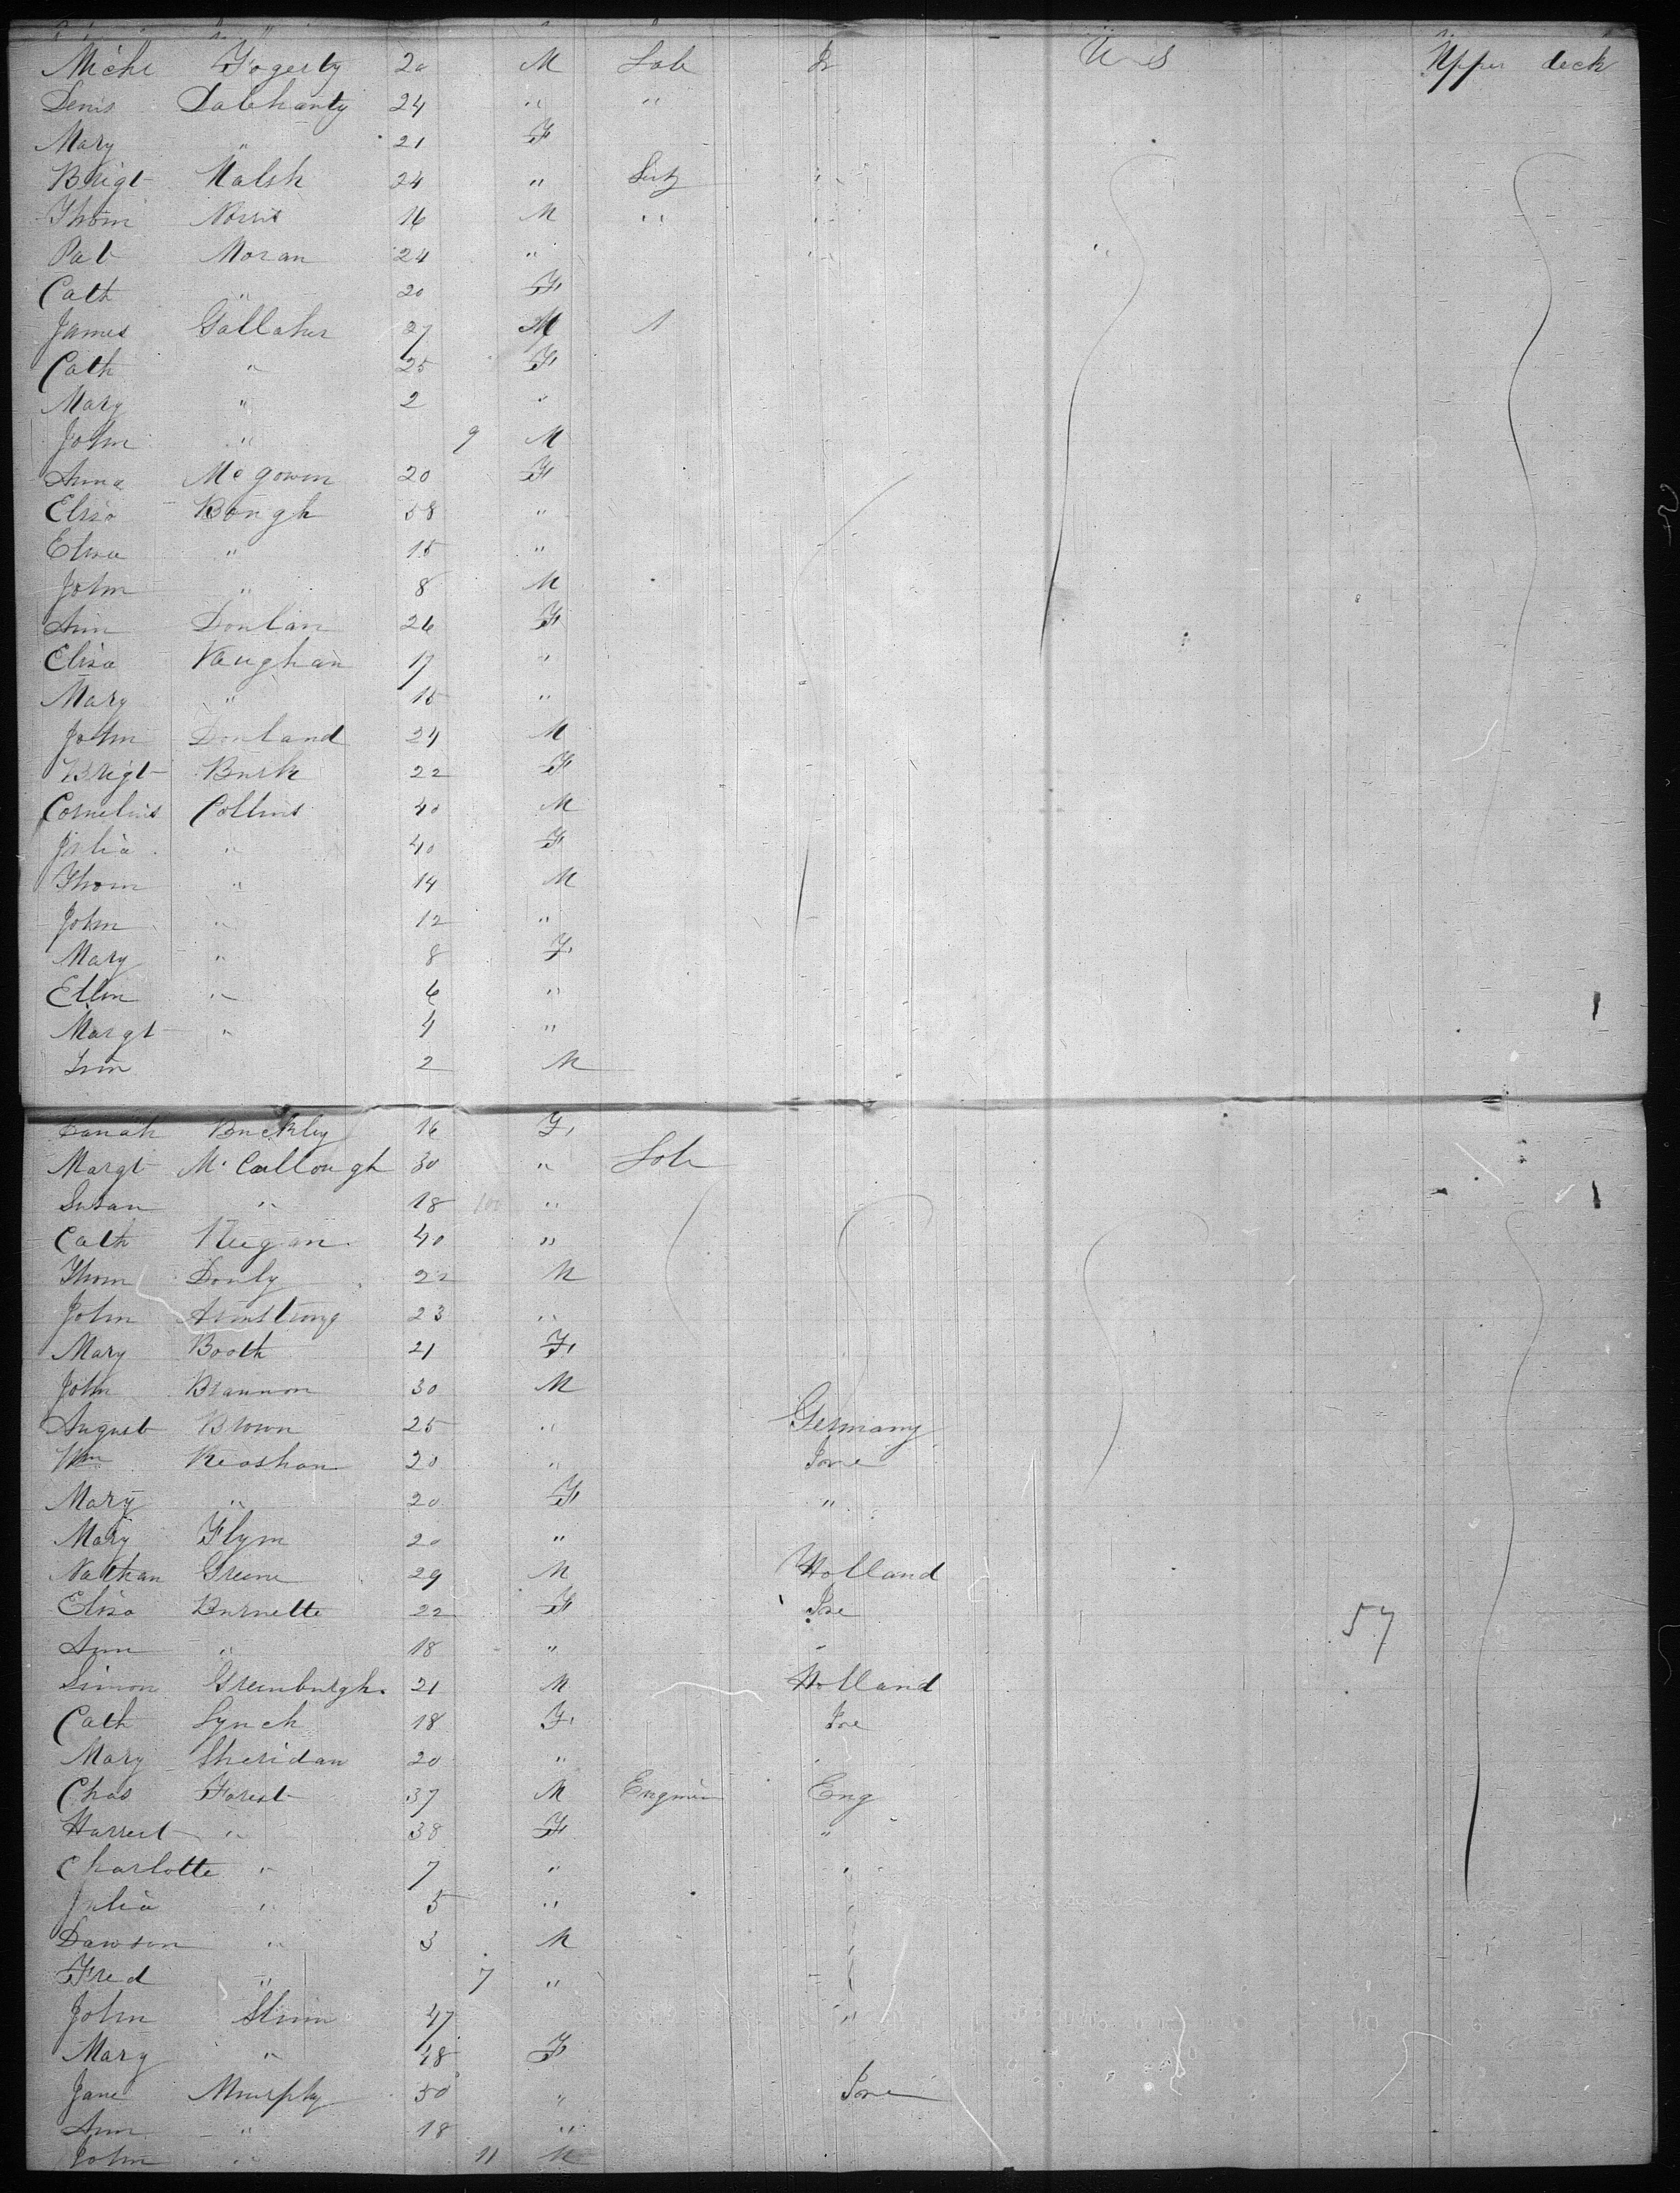 Michl Fogerty 20 M Lab Ir U S Upper deck
Denis Dalehanty 24 " "
Mary " 21 F
Brigt Walsh 24 "
Thom Norris 16 M "
Pat Moran 24 "
Cath " 20 F
James Gallaher 27 M
Cath " 25 F
Mary " 2 "
John " 9 M
Anna McGowen 20 F
Eliza Bough 58 "
Eliza " 15 "
John " 8 M
Ann Donlan 26 F
Eliza Vaughan 17 "
Mary " 15 "
John Donland 24 M
Brigt Burk 22 F
Cornelius Collins 40 M
Julia " 40 F
Thom " 14 M
John " 12 "
Mary " 8 F
Ellen " 6 "
Margt " 4 "
2 M
Buckley 16 F
Margt McCullough 30 " Lab
Susan " 18 "
Cath Keegan 40 "
Thom Donly 22 M
John Armstrong 23 "
Mary Booth 21 F
John Brannon 30 M
August Brown 25 " Germany
Wm Keoshan 20 " Ire
Mary " 20 F "
Mary Flynn 20 "
Nathan Greene 29 M Holland
Eliza Burnette 22 F Ire 57
Ann " 18 " "
Simon Greenburgh 21 M Holland
Cath Lynch 18 F Ire
Mary Sheridan 20 " "
Chas Forest 37 M Engineer Eng
Harriet " 38 F "
Charlotte " 7 " "
Julia " 5 " "
Dawson " 3 M "
Fred " 7 " "
John 47 "
Mary " 48 F
Jane Murphy 50 " Ire
Ann " 18 "
John " 11 M